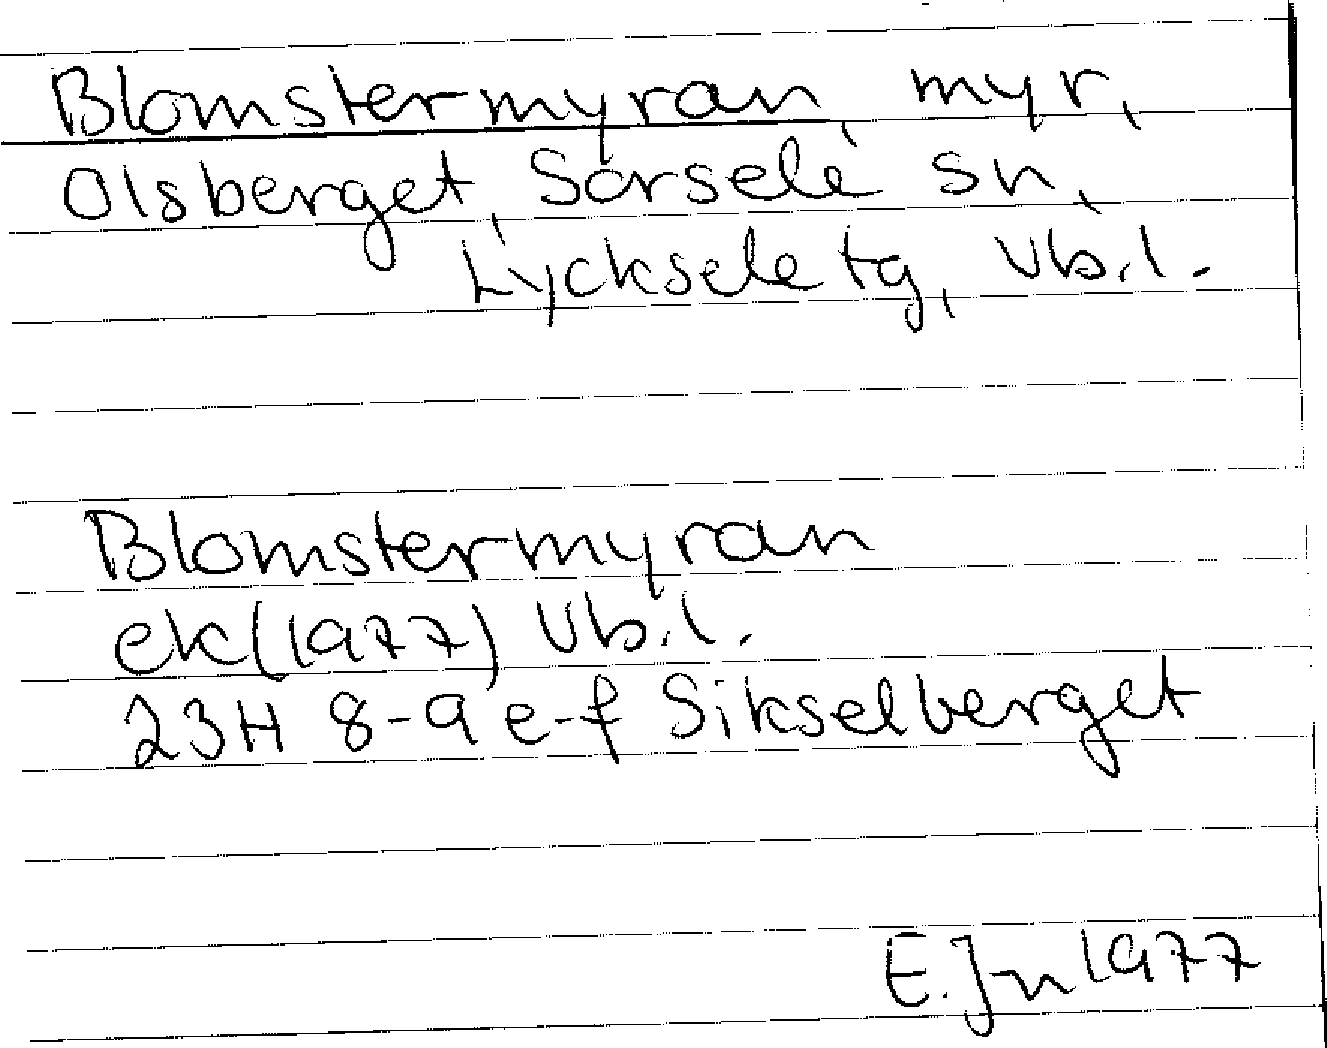 Blomstermyran, myr,
Olsberget, Sorsele sn,
Lycksele tg, Vb.l.
Blomstermyran
ek(1977) Vb.l.
23H 8-9 e-f Sikselberget
E.Jn 1977